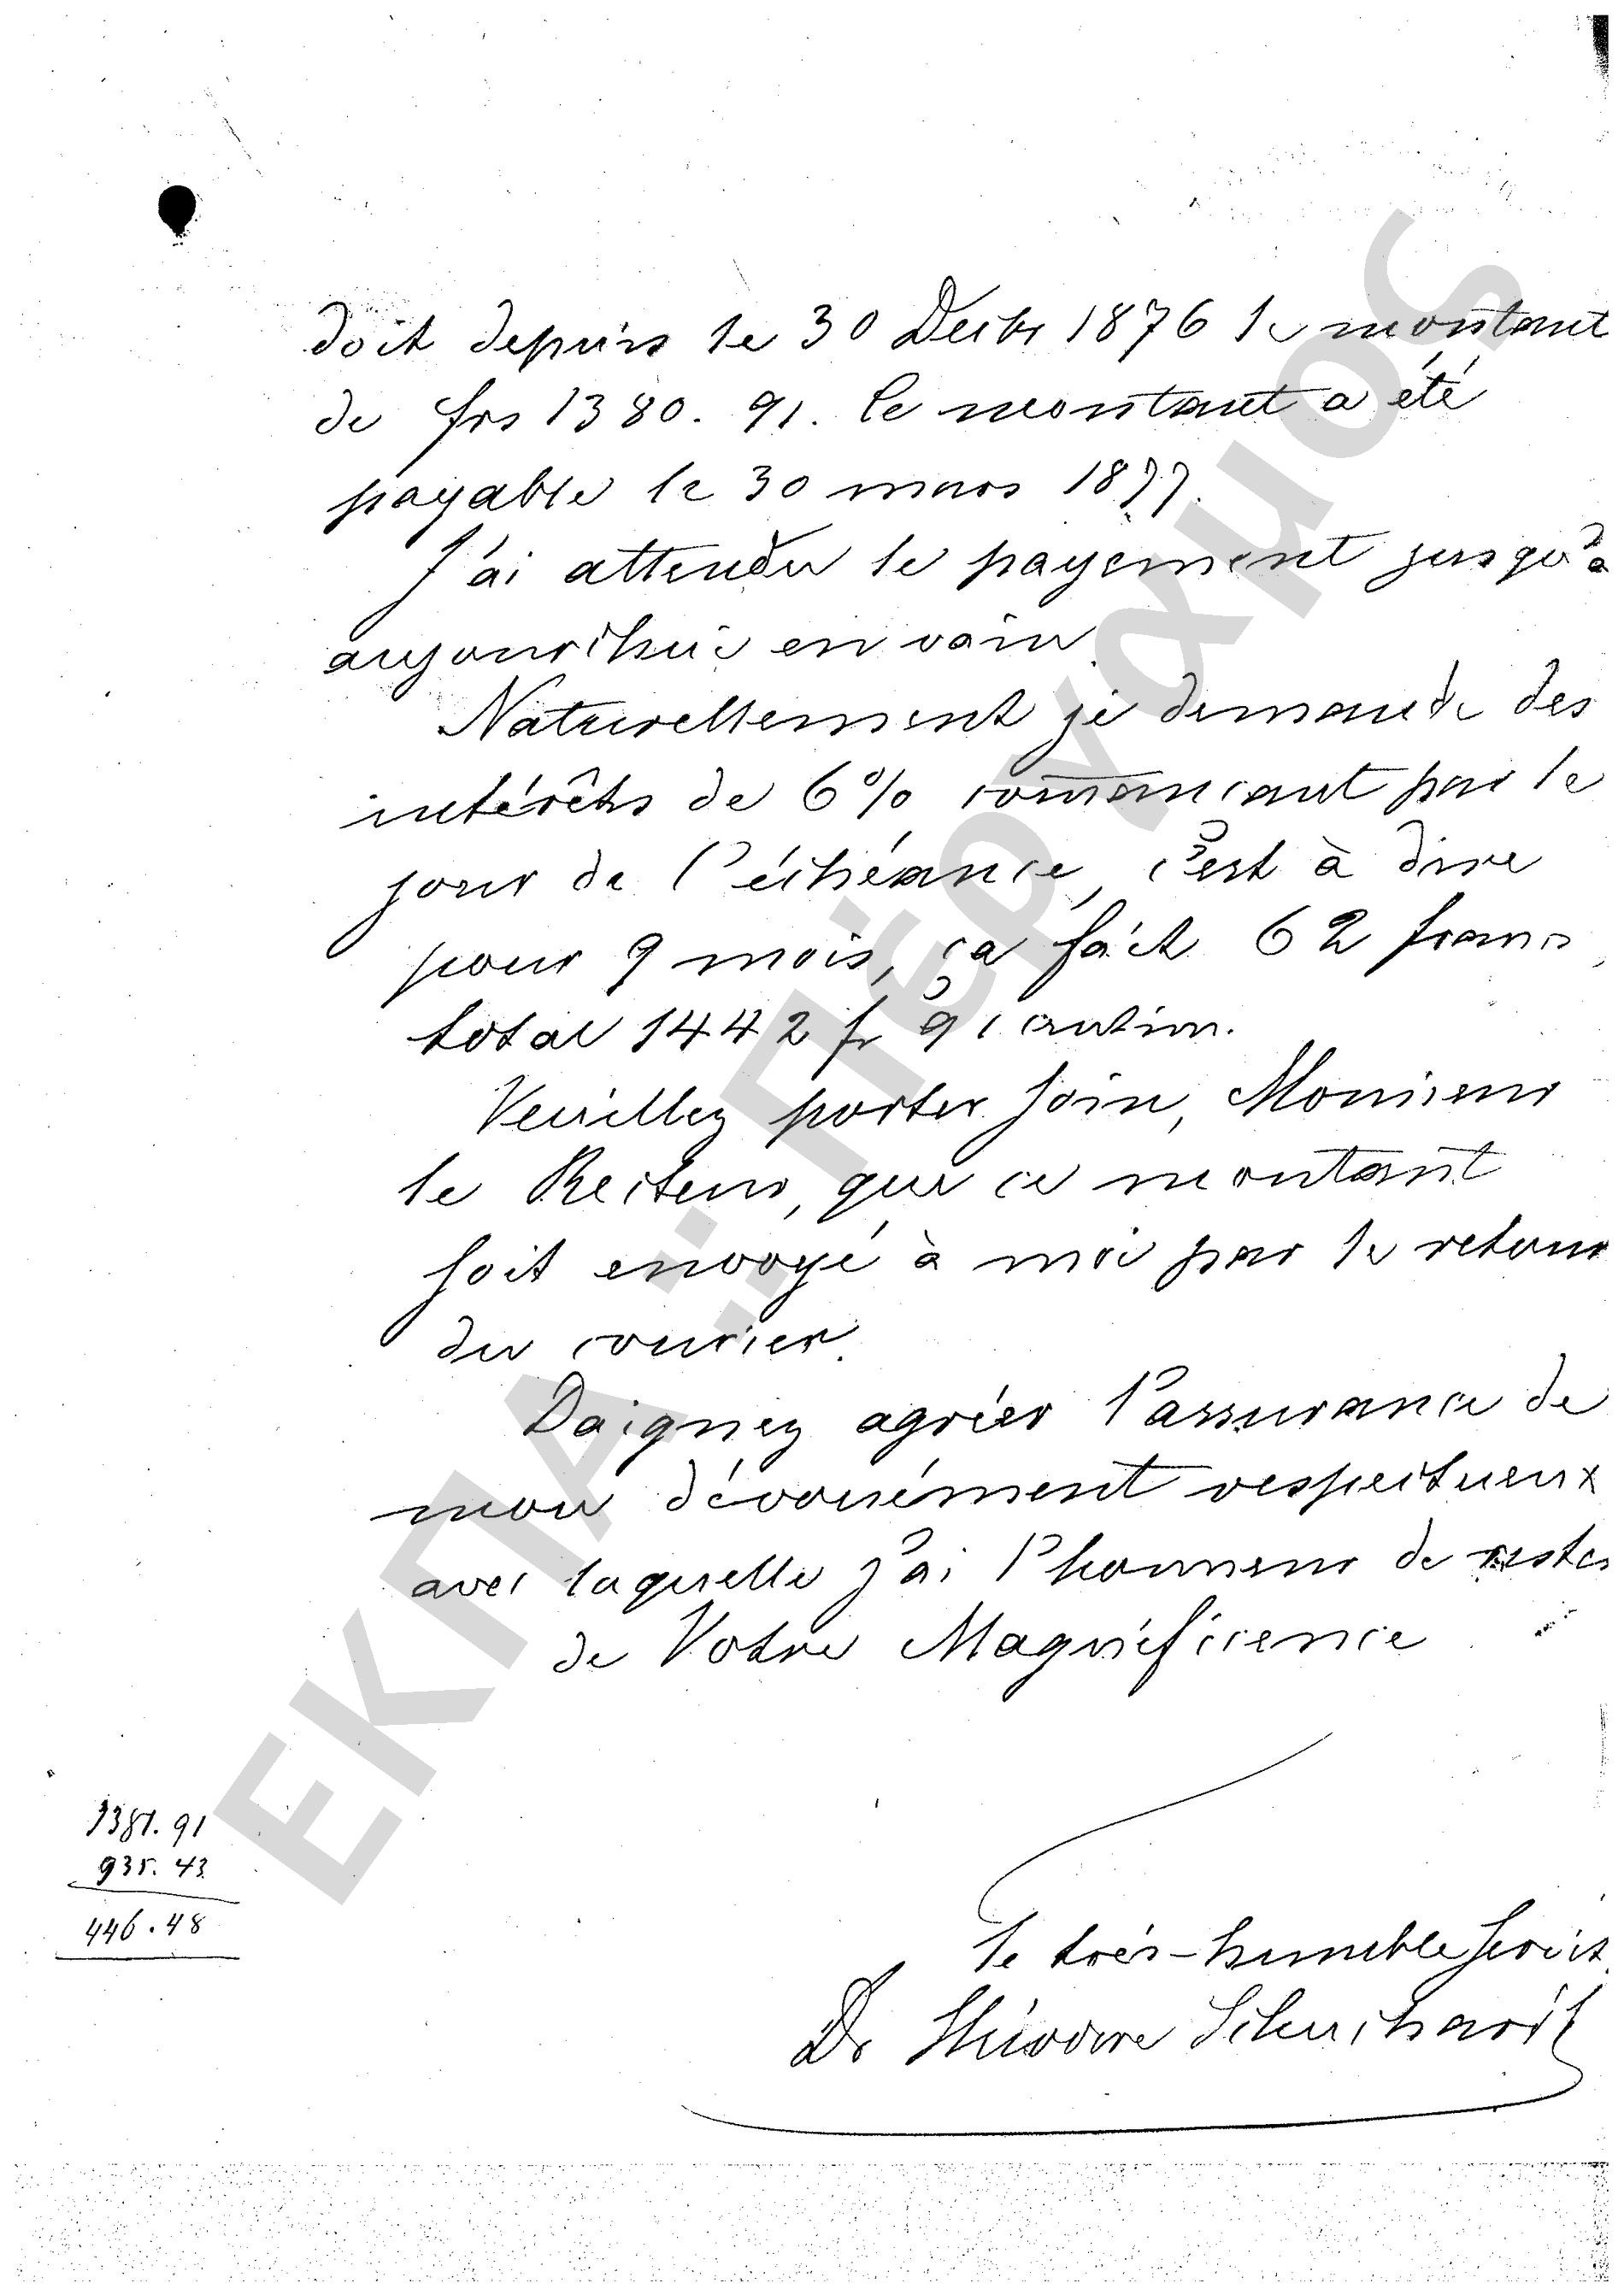 doit depuis le 30 Decbr 1876 le montant
de frs 1380. 91. le montant a été
payable le 30 mars 1877.
J'ai attendu le payement jusqu'à
aujourdhui en vain.
Naturellement je demande des
intérêts de 6% commancant par le
jour de l'échéance, c'est à dire
pour 9 mois, ça fait 62 francs,
total 1442 fr 91 centim.
Veuillez porter soin, Monsieur
le Recteur, que ce montant
soit envoyé à moi par le retour
du courier.
Daignez agréer l'assurance de
mon dévouément respectueux
avec laquelle j'ai l'honneur de rester
de Votre Magnificence
1381. 91
935. 43
446. 48
le très-humble servit.
Dr Théodore Schuchardt
ΕΚΠΑ :: Πέργαμος